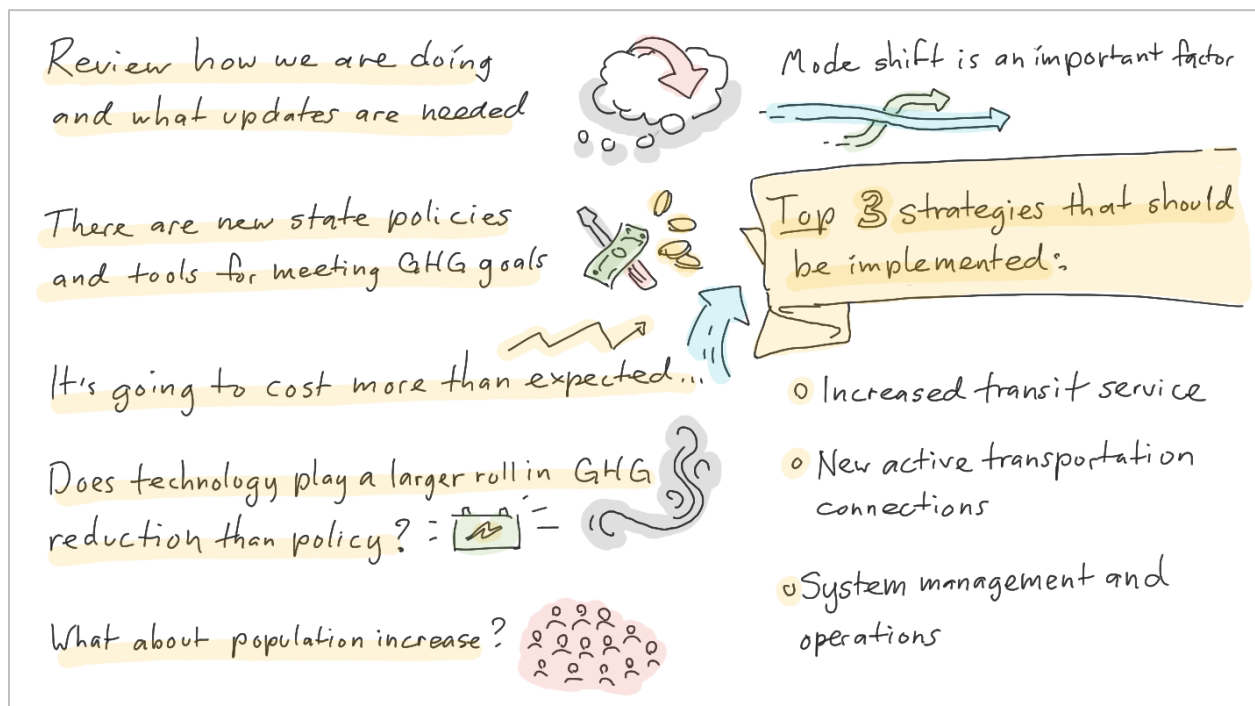 Review how we are doing
and what updates are needed
There are new state policies
and tools for meeting GHG goals
It's going to cost more than expected...
Does technology play a larger roll in GHG
reduction than policy?
What about population increase?
Mode shift is an important factor
Top 3 strategies that should
be implemented:
Increased transit service
New active transportation
connections
System management and
operations